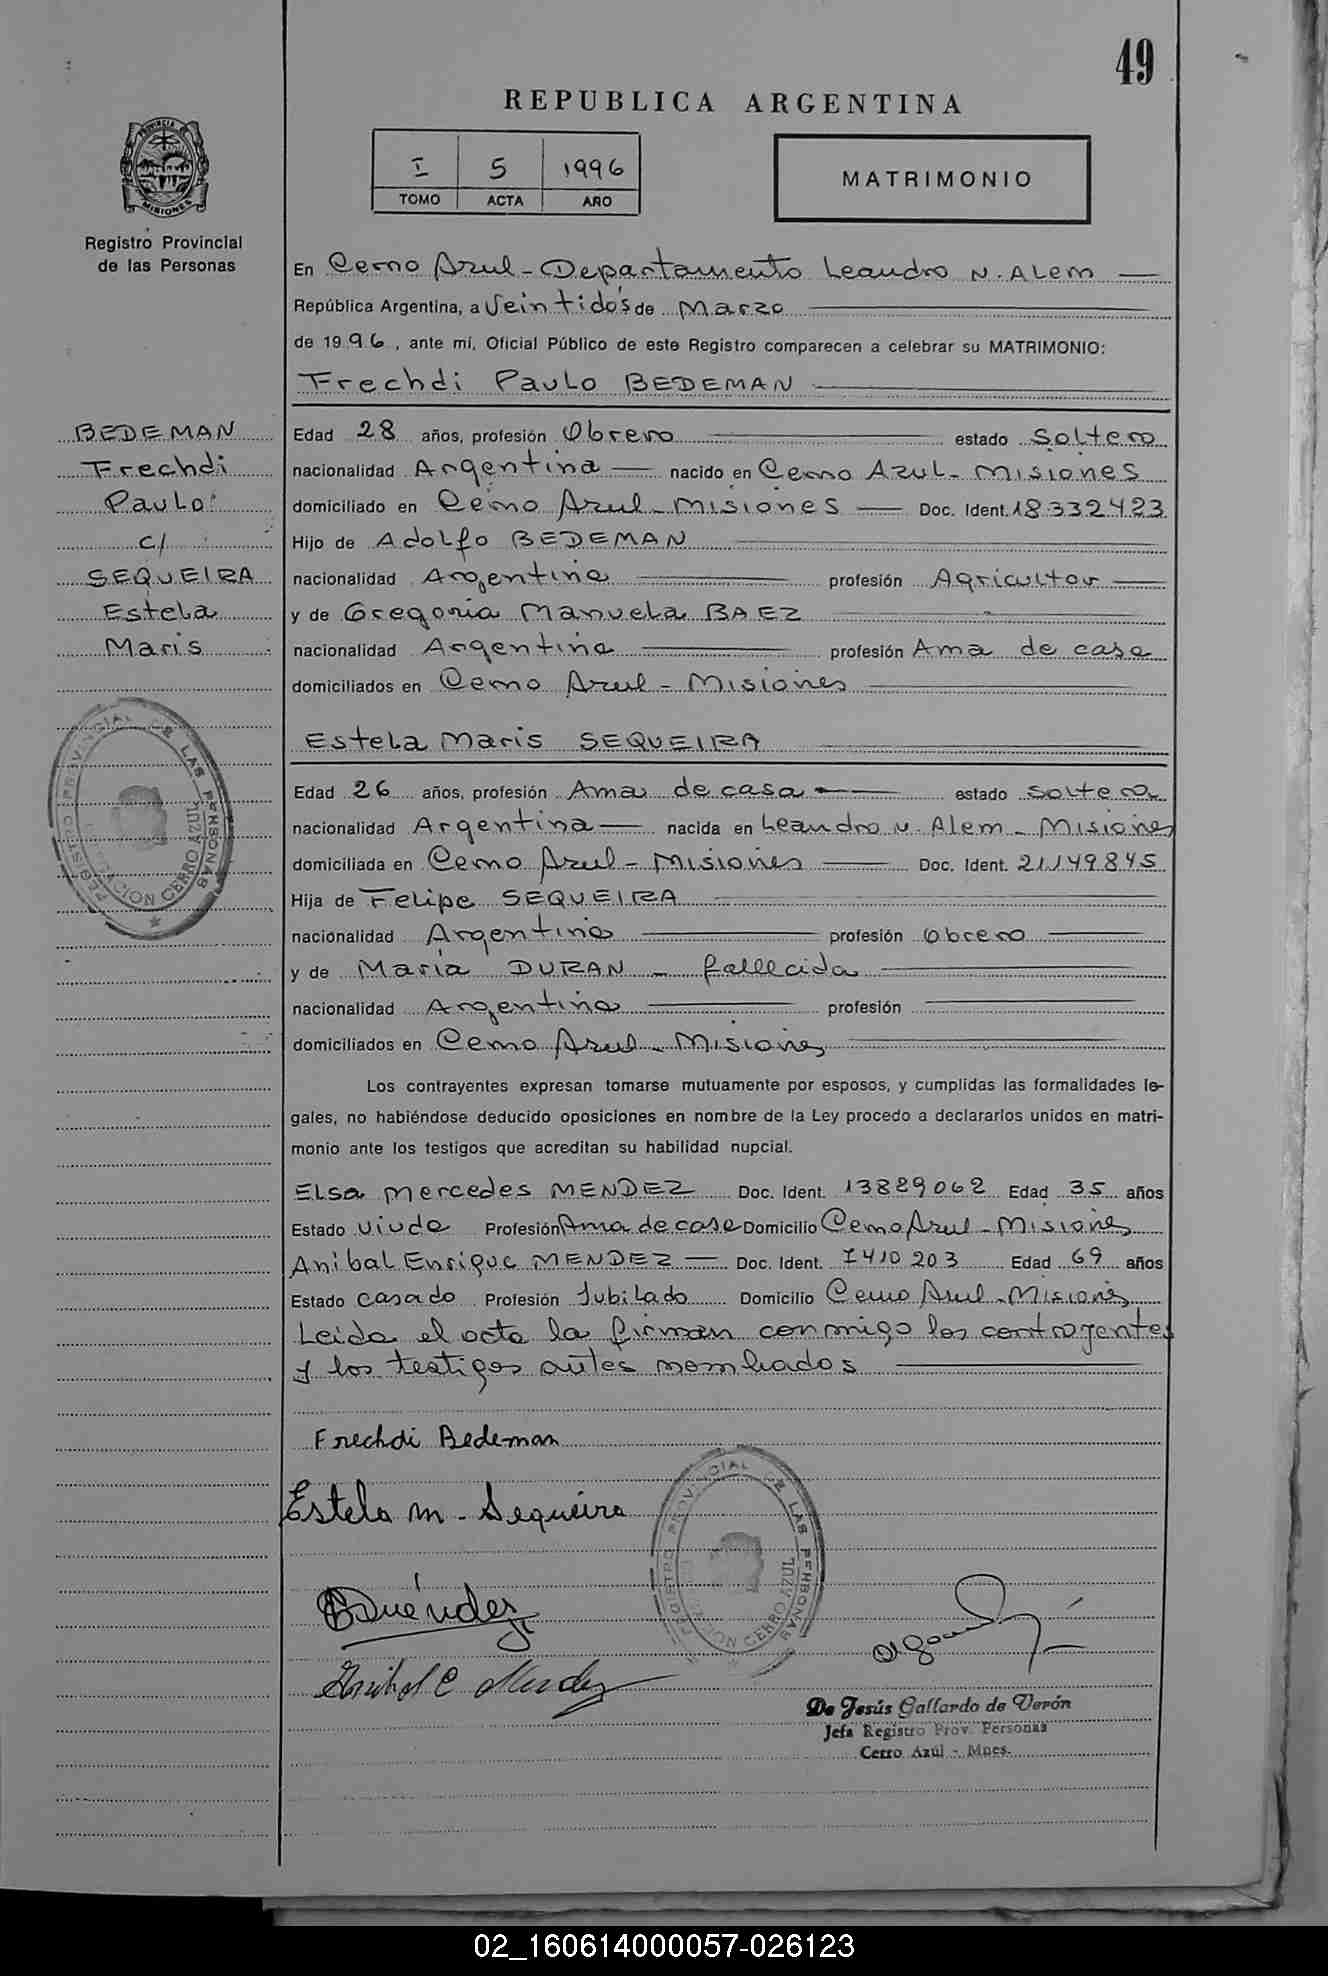 49
REPUBLICA ARGENTINA
I 5 1996
TOMO ACTA AÑO
MATRIMONIO
PROVINCIA DE MISIONES
Registro Provincial
de las Personas
En Cerro Azul - Departamento Leandro N. Alem
República Argentina, a Veintidós de Marzo
de 1996, ante mí, Oficial Público de este Registro comparecen a celebrar su MATRIMONIO:
Frechdi Paulo BEDEMAN
BEDEMAN
Frechdi
Paulo
c/
SEQUEIRA
Estela
Maris
Edad 28 años, profesión Obrero estado Soltero
nacionalidad Argentina nacido en Cerro Azul - Misiones
domiciliado en Cerro Azul - Misiones Doc. Ident. 18.332.423
Hijo de Adolfo BEDEMAN
nacionalidad Argentina profesión Agricultor
y de Gregoria Manuela BAEZ
nacionalidad Argentina profesión Ama de casa
domiciliados en Cerro Azul - Misiones
Estela Maris SEQUEIRA
Edad 26 años, profesión Ama de casa estado soltera
nacionalidad Argentina nacida en Leandro N. Alem - Misiones
domiciliada en Cerro Azul - Misiones Doc. Ident. 21.149.845
Hija de Felipe SEQUEIRA
nacionalidad Argentina profesión Obrero
y de María DURAN - fallecida
nacionalidad Argentina profesión
domiciliados en Cerro Azul - Misiones
REGISTRO PROVINCIAL DE LAS PERSONAS
CERRO AZUL
Los contrayentes expresan tomarse mutuamente por esposos, y cumplidas las formalidades le-
gales, no habiéndose deducido oposiciones en nombre de la Ley procedo a declararlos unidos en matri-
monio ante los testigos que acreditan su habilidad nupcial.
Elsa Mercedes MENDEZ Doc. Ident. 13829062 Edad 35 años
Estado viuda Profesión Ama de casa Domicilio Cerro Azul - Misiones
Anibal Enrique MENDEZ Doc. Ident. 7410203 Edad 69 años
Estado casado Profesión Jubilado Domicilio Cerro Azul - Misiones
Leida el acta la firman conmigo los contrayentes
y los testigos antes nombrados
Frechdi Bedeman
Estela M - Sequeira
Méndez
Anibal E Mendez
REGISTRO PROVINCIAL DE LAS PERSONAS
CERRO AZUL
De Jesús Gallardo de Verón
Jefa Registro Prov. Personas
Cerro Azúl - Mnes.
02_160614000057-026123